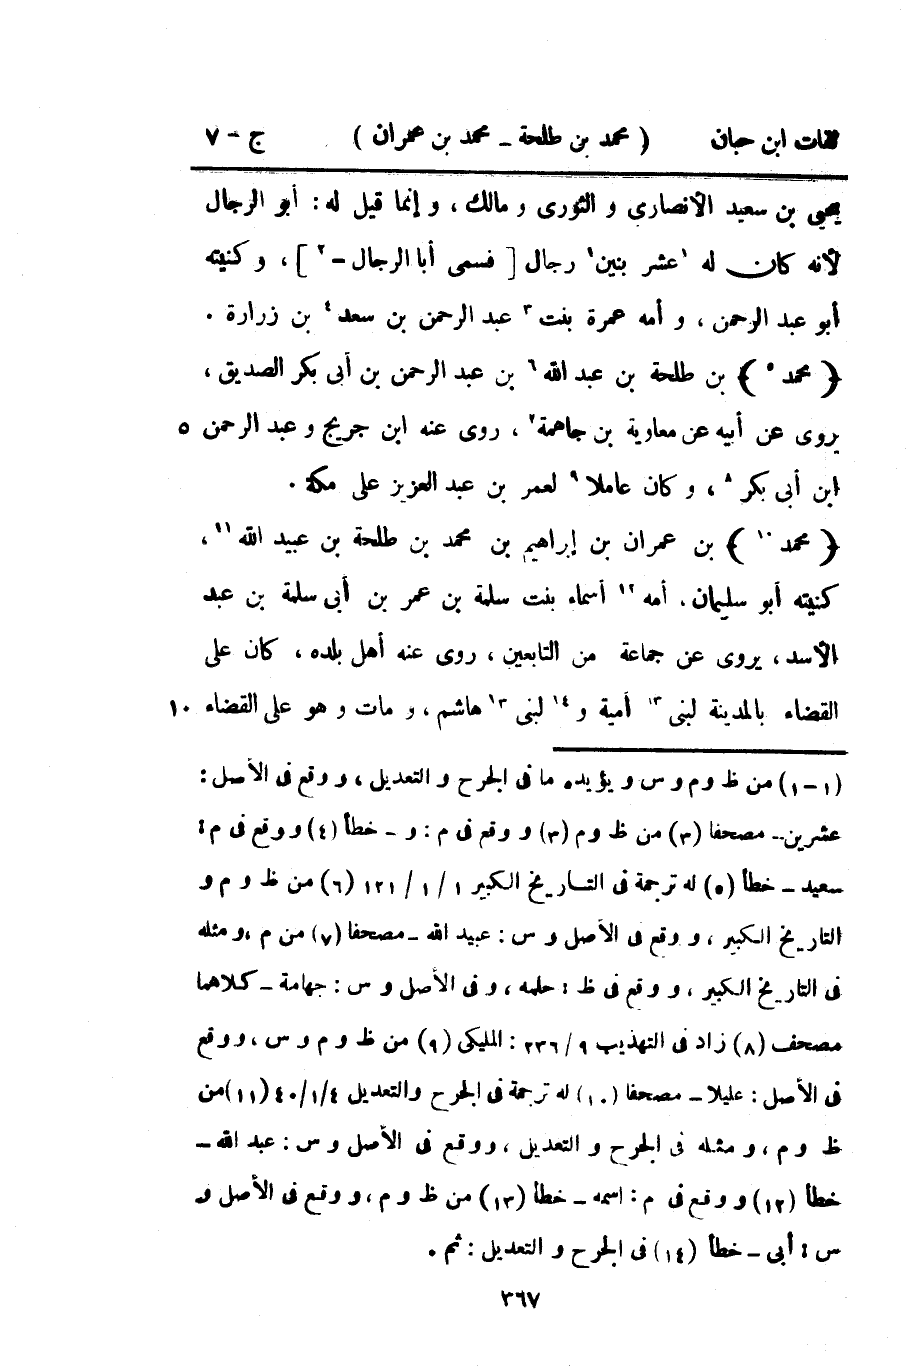 ثقات ابن حبان ( محمد بن طلحة ـ محمد بن عمران ) ج - ٧
يحيى بن سعيد الأنصارى و الثورى و مالك ، و إنما قيل له : أبو الرجال
لأنه كان له ¹عشر بنين¹ رجال [ فسمى أبا الرجال -² ] ، و كنيته
أبو عبد الرحمن ، و أمه عمرة بنت³ عبد الرحمن بن سعد⁴ بن زرارة .
﴿ محمد⁵ ﴾ بن طلحة بن عبد الله⁶ بن عبد الرحمن بن أبى بكر الصديق ،
يروى عن أبيه عن معاوية بن جاهمة⁷ ، روى عنه ابن جريج و عبد الرحمن ٥
ابن أبى بكر⁸ ، و كان عاملا⁹ لعمر بن عبد العزيز على مكة .
﴿ محمد¹⁰ ﴾ بن عمران بن إبراهيم بن محمد بن طلحة بن عبيد الله¹¹ ،
كنيته أبو سليمان . أمه¹² أسماء بنت سلمة بن عمر بن أبى سلمة بن عبد
الأسد ، يروى عن جماعة من التابعين ، روى عنه أهل بلده ، كان على
القضاء بالمدينة لبنى¹³ أمية و¹⁴ لبنى¹³ هاشم ، و مات و هو على القضاء ١٠
(١-١) من ظ و م و س و يؤيده ما فى الجرح و التعديل ، و وقع فى الأصل :
عشرين ـ مصحفا (٣) من ظ و م (٣) و وقع فى م : و ـ خطأ (٤) و وقع فى م :
سعيد ـ خطأ (٥) له ترجمة فى التاريخ الكبير ١ / ١ / ١٢١ (٦) من ظ و م و
التاريخ الكبير ، و وقع فى الأصل و س : عبيد الله ـ مصحفا (٧) من م ، و مثله
فى التاريخ الكبير ، و وقع فى ظ : حلمه ، و فى الأصل و س : جهامة ـ كلاهما
مصحف (٨) زاد فى التهذيب ٩ / ٢٣٦ : المليكى (٩) من ظ و م و س ، و وقع
فى الأصل : عليلا ـ مصحفا (١٠) له ترجمة فى الجرح والتعديل ٤/١/٤٠ (١١) من
ظ و م ، و مثله فى الجرح و التعديل ، ووقع فى الأصل و س : عبد الله ـ
خطأ (١٢) و وقع فى م : اسمه ـ خطأ (١٣) من ظ و م ، و وقع فى الأصل و
س : أبى ـ خطأ (١٤) فى الجرح و التعديل : ثم .
٣٦٧